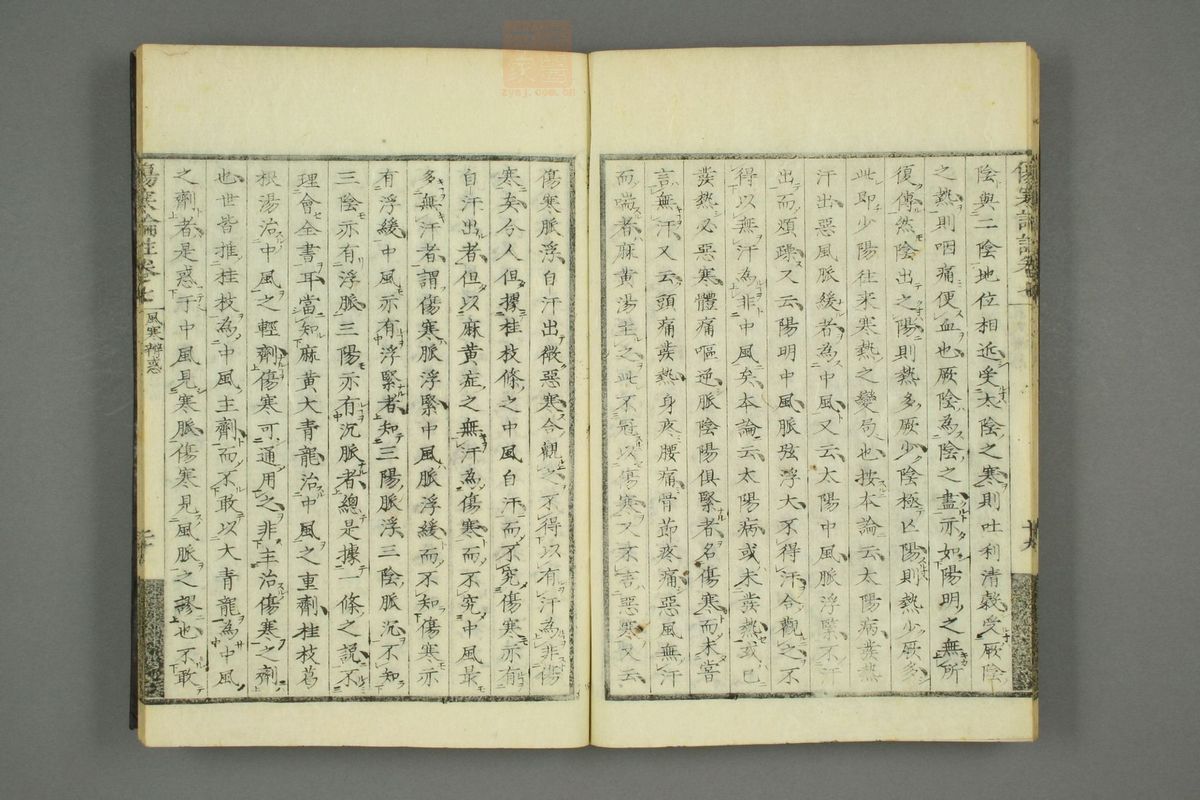 陰與二陰地位相近受太陰之寒則吐利清穀受厥陰
之熱則咽痛便血也厥陰為陰之盡亦如陽明之無所
復傳然陰出之陽則熱多厥少陰極亡陽則熱少厥多
此即少陽往來寒熱之變局也按本論云太陽病發熱
汗出惡風脈緩者為中風又云太陽中風脈浮緊不汗
出而煩躁又云陽明中風脈弦浮大不得汗合觀之不
得以無汗為非中風矣本論云太陽病或未發熱或已
發熱必惡寒體痛嘔逆脈陰陽俱緊者名傷寒而未嘗
言無汗又云頭痛發熱身疼腰痛骨節疼痛惡風無汗
而喘者麻黃湯主之此不冠以傷寒又不言惡寒又云
傷寒脈浮自汗出微惡寒合觀之不得以有汗為非傷
寒矣今人但據桂枝條之中風自汗而不究傷寒亦有
自汗出者但以麻黃症之無汗為傷寒而不究中風最
多無汗者謂傷寒脈浮緊中風脈浮緩而不知傷寒亦
有浮緩中風亦有浮緊者知三陽脈浮三陰脈沉不知
三陰亦有浮脈三陽亦有沉脈者總是據一條之說不
理會全書耳當知麻黃大青龍治中風之重劑桂枝葛
根湯治中風之輕劑傷寒可通用之非主治傷寒之劑
也世皆推桂枝為中風主劑而不敢以大青龍為中風
之劑者是惑于中風見寒脈傷寒見風脈之謬也不敢
傷寒論註卷
風寒辨惑
zysj.com.cn